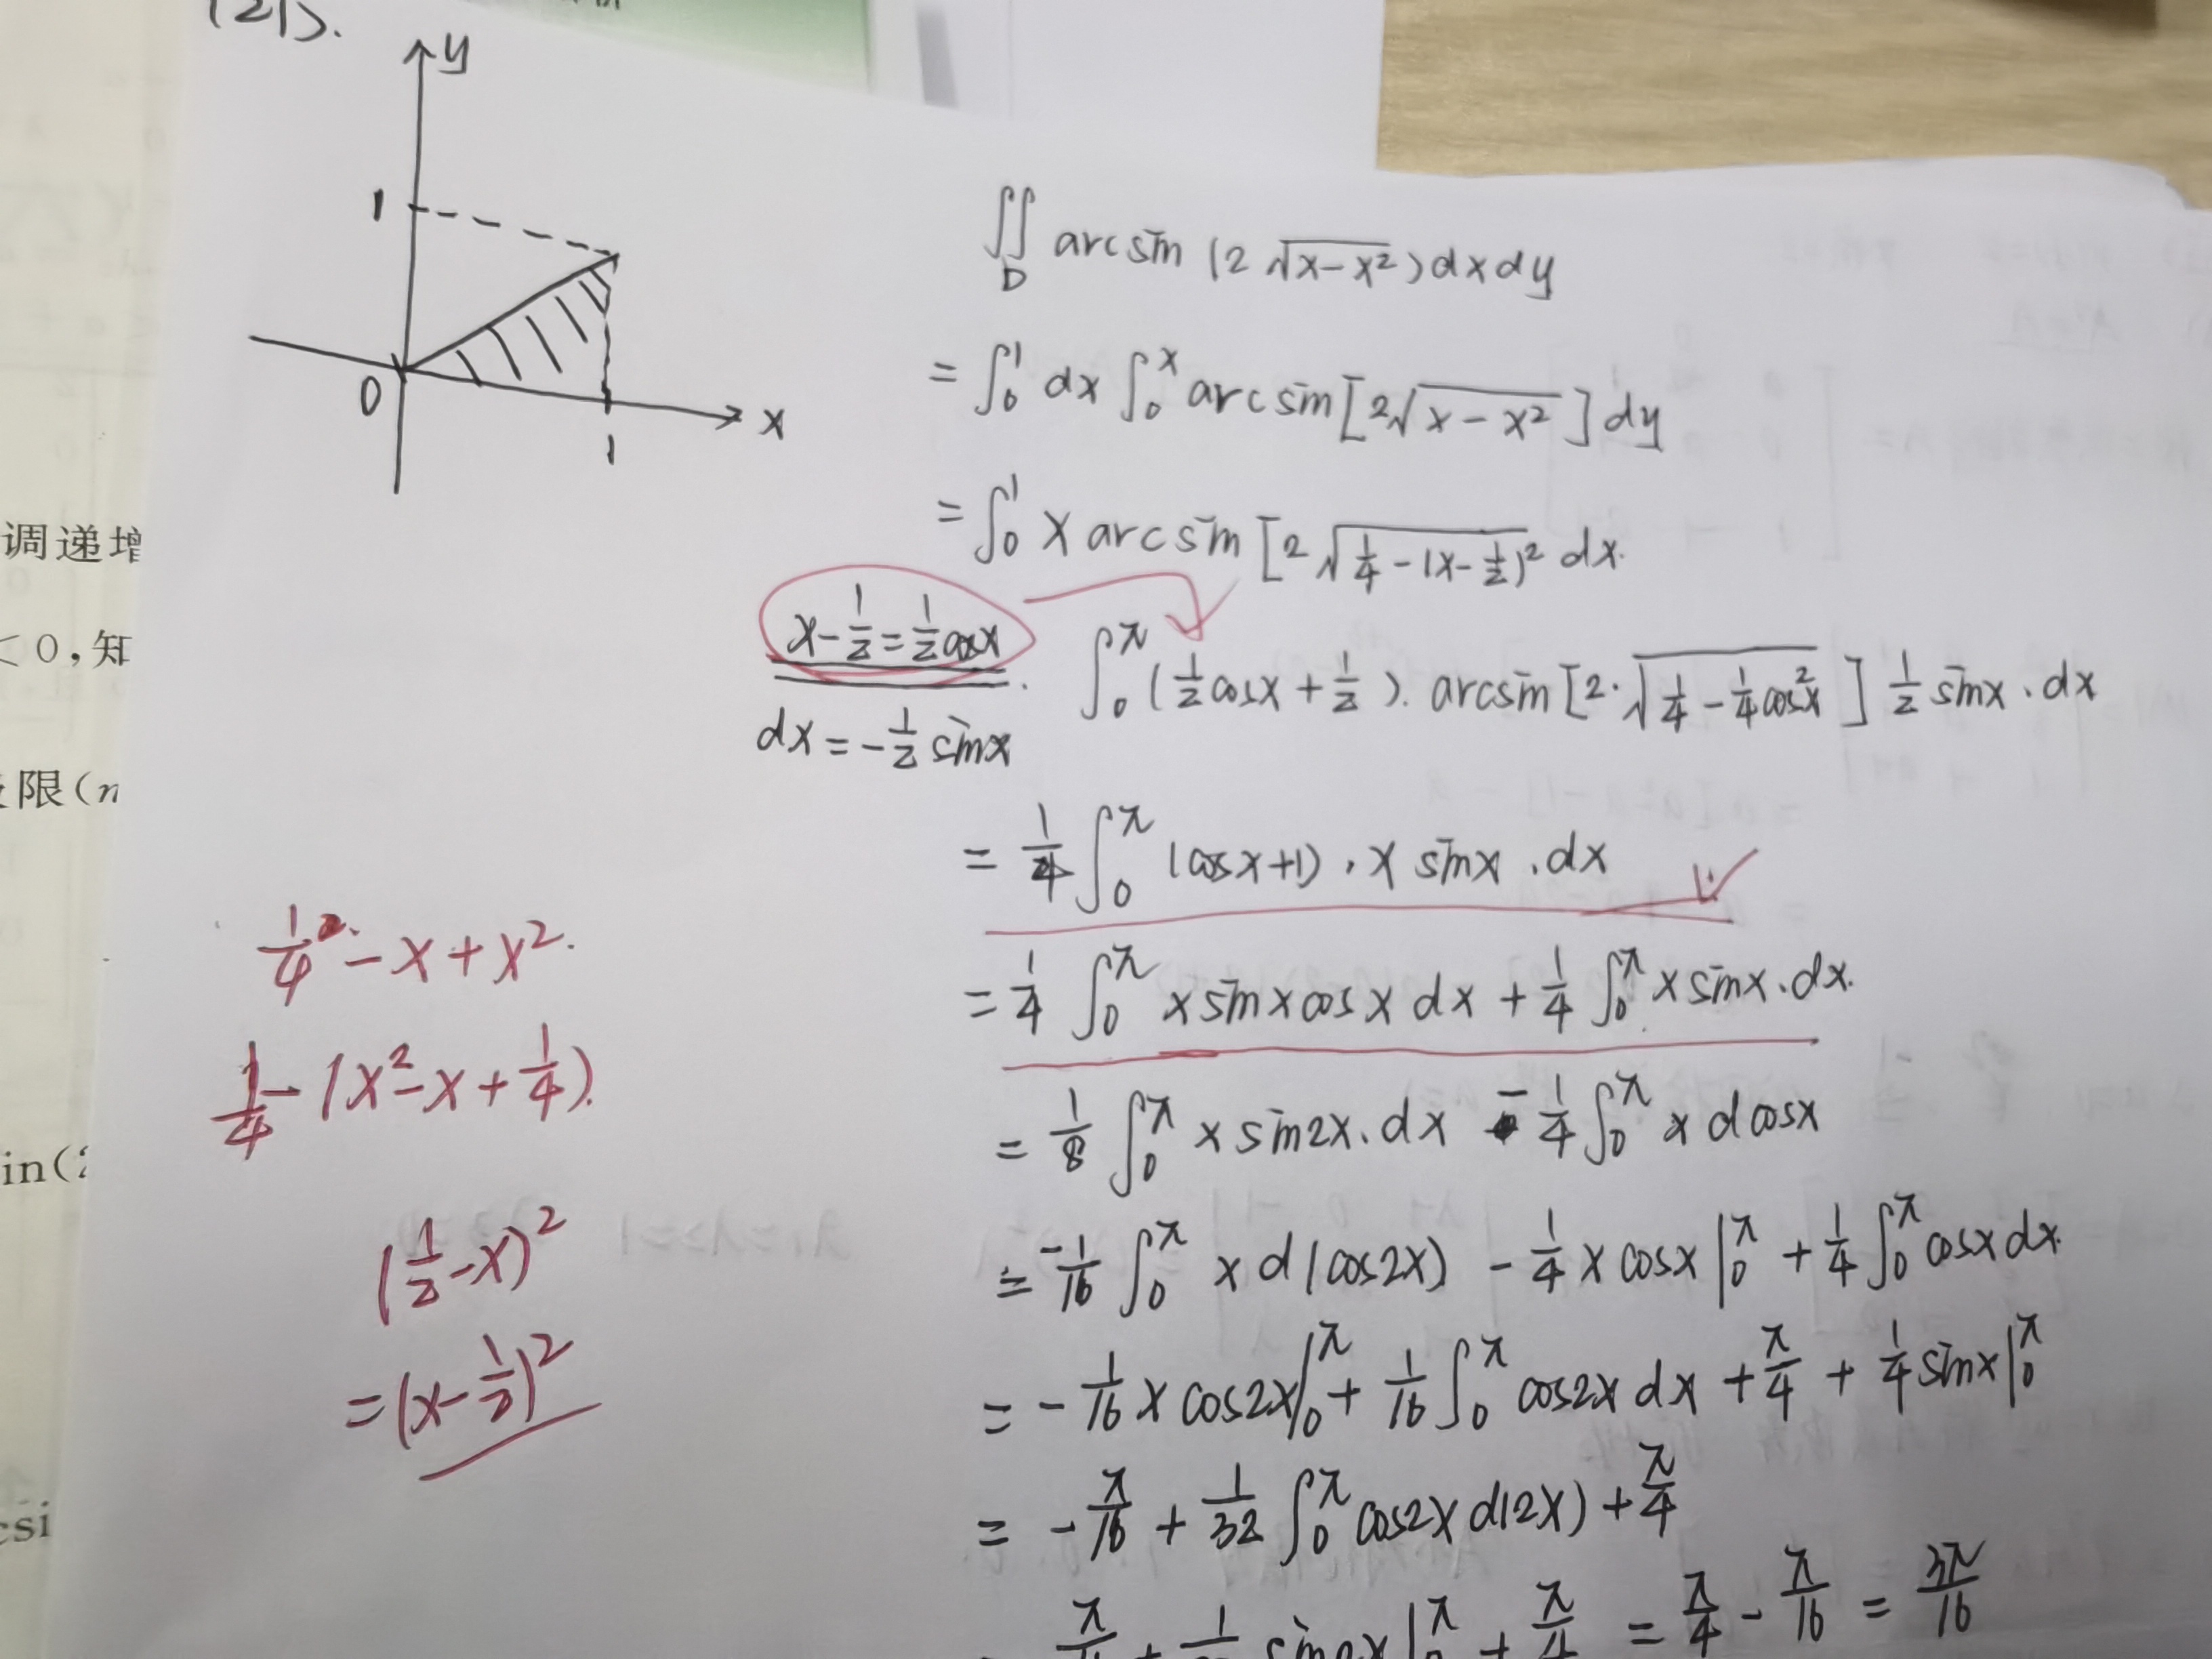 (21).
y
1
0
x
1
∬_D arcsin (2√(x-x²)) dxdy
= ∫₀¹ dx ∫₀ˣ arcsin[2√(x-x²)] dy
= ∫₀¹ x arcsin [2√(1/4-(x-1/2)²) dx.
x-1/2=1/2cosx
dx=-1/2 sinx
∫₀^π (1/2cosx+1/2). arcsin[2·√(1/4-1/4cos²x)] 1/2 sinx.dx
= 1/4 ∫₀^π (cosx+1).x sinx.dx
= 1/4 ∫₀^π x sinxcosx dx + 1/4 ∫₀^π x sinx.dx.
= 1/8 ∫₀^π x sin2x.dx - 1/4 ∫₀^π x dcosx
= -1/16 ∫₀^π x d(cos2x) - 1/4 x cosx|₀^π + 1/4 ∫₀^π cosxdx.
= -1/16 x cos2x|₀^π + 1/16 ∫₀^π cos2x dx + π/4 + 1/4 sinx|₀^π
= -π/16 + 1/32 ∫₀^π cos2x d(2x) + π/4
= π/4 - π/16 = 3π/16
1/4-x+x².
1/4-(x²-x+1/4).
(1/2-x)²
=(x-1/2)²
调递增
<0,知
限(n
in(2
csi